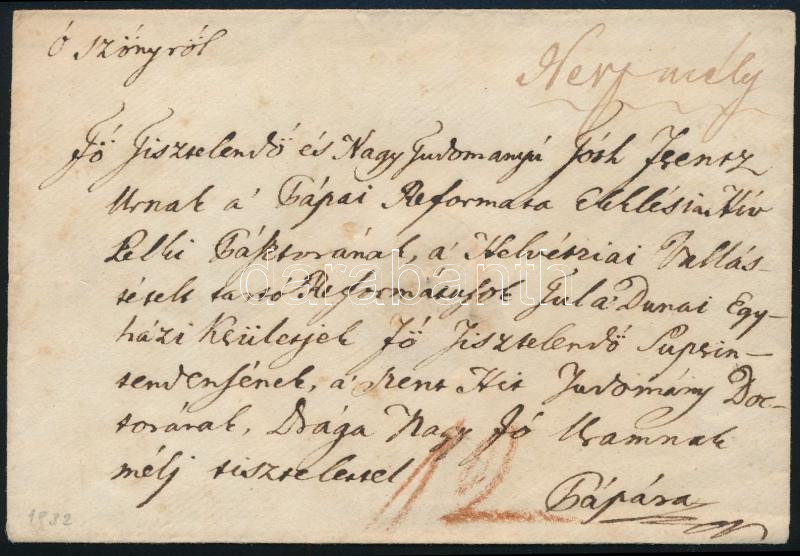 Ó Szőnyről
Neszmély
Fő Tisztelendő és Nagy Tudományú Tóth Ferentz
Urnak á Pápai Reformata Ekklésia Hív
Lelki Pásztorának, á Helvétziai Vallás-
tételt tartó Reformátusok Túl á Dunai Egy-
házi Kerületjek Fő Tisztelendő Suprin-
tendensének, á Szent Hit Tudomány Doc-
torának, Drága Nagy Jó Uramnak
mélj tisztelettel
Pápára
12
1832
darabanth